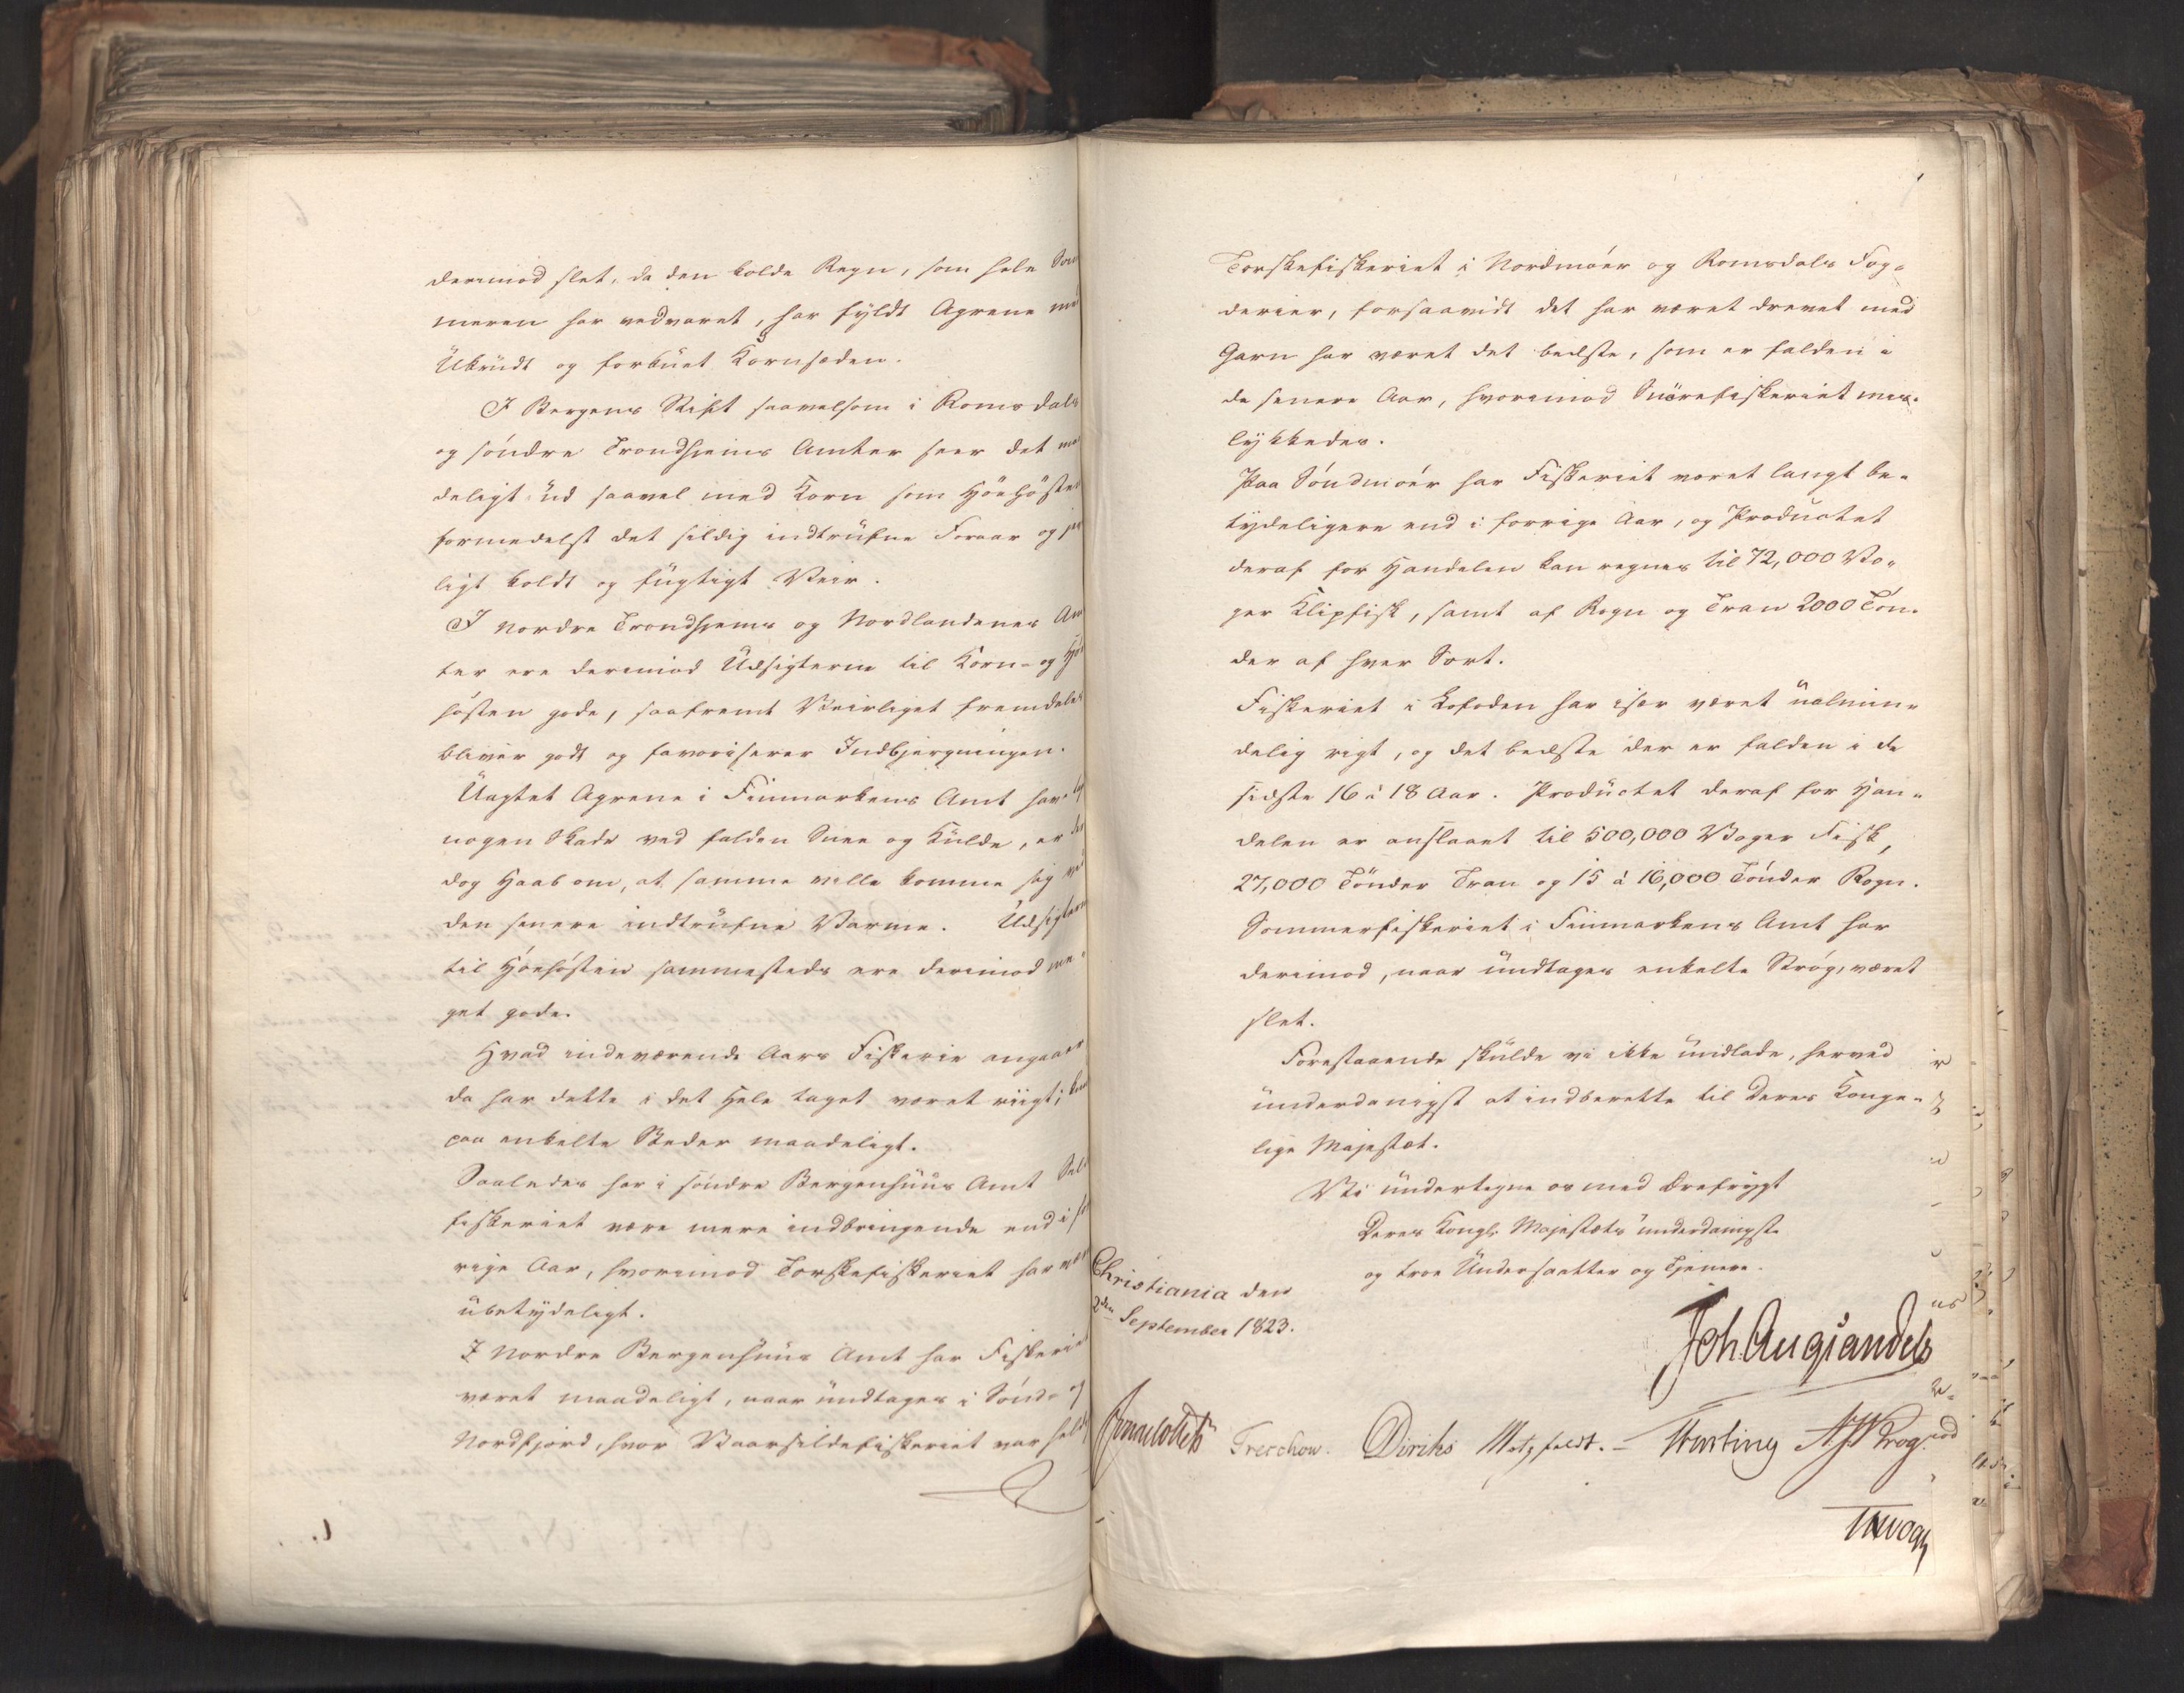 derimod slet, da den kolde Regn, som hele Som
meren har vedvaret, har fyldt Agrene med
Ukrudt og forkuet Kornsæden.
I Bergens Stift saavelsom i Romsdals
og søndre Trondhjems Amter seer det
deligt ud saavel med Korn som Høehøsten
formedelst det sildig indtrufne Foraar og
ligt koldt og fugtigt Veir.
I Nordre Trondhjems og Nordlandenes Am
ter ere derimod Udsigterne til Korn- og Høe
høsten gode, saafremt Veirliget fremdeles
bliver godt og favoriserer Indbjergningen.
Uagtet Agrene i Finmarkens Amt have
nogen Skade ved falden Snee og Kulde, er der
dog Haab om, at samme ville komme sig ved
den senere indtrufne Varme. Udsigterne
til Høehøsten sammesteds ere derimod me-
get gode.
Hvad indeværende Aars Fiskerie angaaer
da har dette i det Hele taget været riigt; kun
paa enkelte Steder maadeligt.
Saaledes har i søndre Bergenhuus Amt Sild
fiskeriet være mere indbringende end i for
rige Aar, hvorimod Torskefiskeriet har været
ubetydeligt.
I Nordre Bergenhuus Amt har Fiskeriet
været maadeligt, naar undtages i Sønd- og
Nordfjord, hvor Vaarsildefiskeriet var heldigt
Torskefiskeriet i Nordmøer og Romsdals Fog-
derier, forsaavidt det har været drevet med
Garn har været det bedste, som er falden i
de senere Aar, hvorimod Snørefiskeriet mis-
lykkedes.
Paa Søndmøer har Fiskeriet været langt be-
tydeligere end i forrige Aar, og Productet
deraf for Handelen kan regnes til 72,000 Vo-
ger Klipfisk, samt af Rogn og Tran 2000 Tøn-
der af hver Sort.
Fiskeriet i Lofoden har især været ualmin-
delig rigt, og det bedste der er falden i de
sidste 16 à 18 Aar. Productet deraf for Han-
delen er anslaaet til 500,000 Voger Fisk,
27,000 Tønder Tran og 15 à 16,000 Tønder Rogn.
Sommerfiskeriet i Finmarkens Amt har
derimod, naar undtages enkelte Strøg, været
slet.
Forestaaende skulde vi ikke undlade, herved
underdanigst at indberette til Deres Konge-
lige Majestæt.
Vi undertegne os med Ærefrygt
Deres Kongl. Majestæts underdanigste
og troe Undersaatter og Tjenere.
Christiania den
2den September 1823.
Joh. Aug Sandels
Sommerfeldt Treschow. Diriks Motzfeldt. Fasting A. Krog.